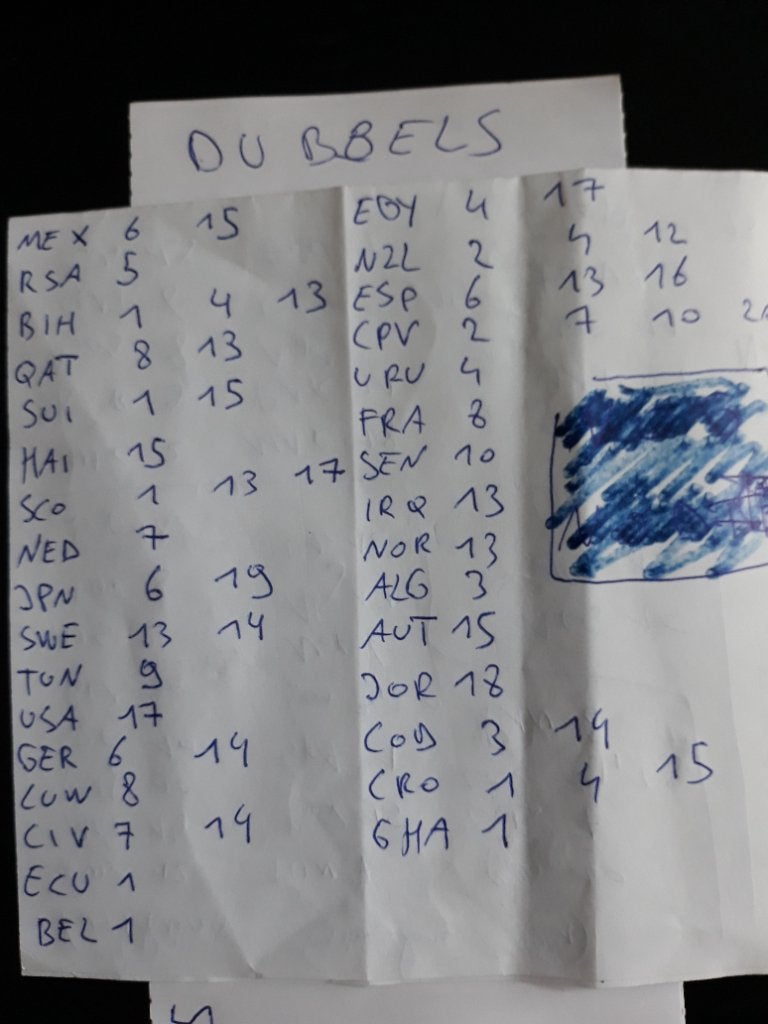 DUBBELS
MEX 6 15
RSA 5
BIH 1 4 13
QAT 8 13
SUI 1 15
HAI 15
SCO 1 13 17
NED 7
JPN 6 19
SWE 13 14
TUN 9
USA 17
GER 6 14
CUW 8
CIV 7 14
ECU 1
BEL 1
EGY 4 17
NZL 2 4 12
ESP 6 13 16
CPV 2 7 10
URU 4
FRA 8
SEN 10
IRQ 13
NOR 13
ALG 3
AUT 15
JOR 18
COD 3 14
CRO 1 4 15
GHA 1